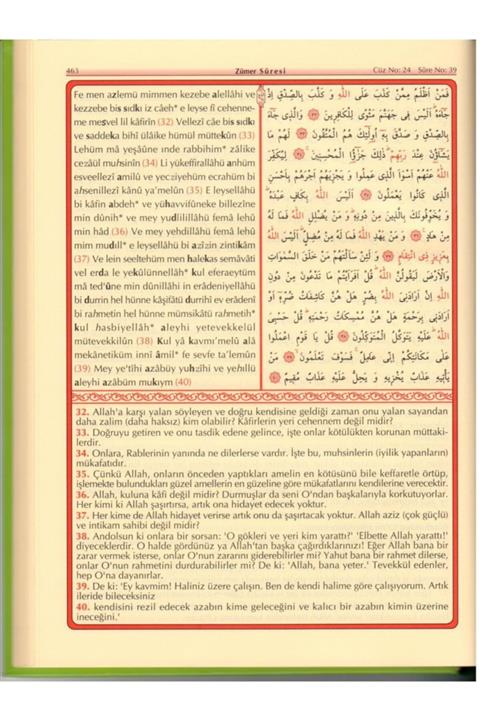 463 Zümer Sûresi Cüz No: 24 Sûre No: 39
Fe men azlemü mimmen kezebe alellâhi ve
kezzebe bis sıdkı iz câeh* e leyse fî cehenne-
me mesvel lil kâfirîn (32) Vellezî câe bis sıdkı
ve saddeka bihî ülâike hümül müttekûn (33)
Lehüm mâ yeşâûne inde rabbihim* zâlike
cezâül muhsinîn (34) Li yükeffirallâhü anhüm
esveellezî amilû ve yecziyehüm ecrahüm bi
ahsenillezî kânû ya'melûn (35) E leysellâhü
bi kâfin abdeh* ve yühavvifûneke billezîne
min dûnih* ve mey yudlilillâhü femâ lehû
min hâd (36) Ve mey yehdillâhü femâ lehû
mim mudıll* e leysellâhü bi azîzin zintikâm
(37) Ve lein seeltehüm men halekas semâvâti
vel erda le yekûlünnellâh* kul eferaeytüm
mâ ted'ûne min dûnillâhi in erâdeniyellâhü
bi durrin hel hünne kâşifâtü durrihî ev erâdenî
bi rahmetin hel hünne mümsikâtü rahmetih*
kul hasbiyellâh* aleyhi yetevekkelül
mütevekkilûn (38) Kul yâ kavmı'melû alâ
mekânetiküm innî âmil* fe sevfe ta'lemûn
(39) Mey ye'tîhi azâbüy yuhzîhi ve yehıllü
aleyhi azâbüm mukıym (40)
فَمَنْ اَظْلَمُ مِمَّنْ كَذَبَ عَلَى اللّٰهِ وَ كَذَّبَ بِالصِّدْقِ اِذْ
جَٓاءَهُ اَلَيْسَ فٖى جَهَنَّمَ مَثْوًى لِلْكَافِرٖينَ ﴿٣٢﴾ وَالَّذٖى جَٓاءَ
بِالصِّدْقِ وَ صَدَّقَ بِهٖٓ اُولٰٓئِكَ هُمُ الْمُتَّقُونَ ﴿٣٣﴾ لَهُمْ مَا
يَشَٓاؤُنَ عِنْدَ رَبِّهِمْ ذٰلِكَ جَزٰٓؤُا الْمُحْسِنٖينَ ﴿٣٤﴾ لِيُكَفِّرَ
اللّٰهُ عَنْهُمْ اَسْوَاَ الَّذٖى عَمِلُوا وَ يَجْزِيَهُمْ اَجْرَهُمْ بِاَحْسَنِ
الَّذٖى كَانُوا يَعْمَلُونَ ﴿٣٥﴾ اَلَيْسَ اللّٰهُ بِكَافٍ عَبْدَهُ
وَ يُخَوِّفُونَكَ بِالَّذٖينَ مِنْ دُونِهٖ وَ مَنْ يُضْلِلِ اللّٰهُ فَمَا لَهُ
مِنْ هَادٍ ﴿٣٦﴾ وَ مَنْ يَهْدِ اللّٰهُ فَمَا لَهُ مِنْ مُضِلٍّ اَلَيْسَ اللّٰهُ
بِعَزٖيزٍ ذِى انْتِقَامٍ ﴿٣٧﴾ وَ لَئِنْ سَاَلْتَهُمْ مَنْ خَلَقَ السَّمٰوَاتِ
وَالْاَرْضَ لَيَقُولُنَّ اللّٰهُ قُلْ اَفَرَاَيْتُمْ مَا تَدْعُونَ مِنْ دُونِ
اللّٰهِ اِنْ اَرَادَنِىَ اللّٰهُ بِضُرٍّ هَلْ هُنَّ كَاشِفَاتُ ضُرِّهٖٓ اَوْ
اَرَادَنٖى بِرَحْمَةٍ هَلْ هُنَّ مُمْسِكَاتُ رَحْمَتِهٖ قُلْ حَسْبِىَ
اللّٰهُ عَلَيْهِ يَتَوَكَّلُ الْمُتَوَكِّلُونَ ﴿٣٨﴾ قُلْ يَا قَوْمِ اعْمَلُوا
عَلٰى مَكَانَتِكُمْ اِنّٖى عَامِلٌ فَسَوْفَ تَعْلَمُونَ ﴿٣٩﴾ مَنْ
يَاْتٖيهِ عَذَابٌ يُخْزٖيهِ وَ يَحِلُّ عَلَيْهِ عَذَابٌ مُقٖيمٌ ﴿٤٠﴾
32. Allah'a karşı yalan söyleyen ve doğru kendisine geldiği zaman onu yalan sayandan
daha zalim (daha haksız) kim olabilir? Kâfirlerin yeri cehennem değil midir?
33. Doğruyu getiren ve onu tasdik edene gelince, işte onlar kötülükten korunan müttaki-
lerdir.
34. Onlara, Rablerinin yanında ne dilerlerse vardır. İşte bu, muhsinlerin (iyilik yapanların)
mükafatıdır.
35. Çünkü Allah, onların önceden yaptıkları amelin en kötüsünü bile keffaretle örtüp,
işlemekte bulundukları güzel amellerin en güzeline göre mükafatlarını kendilerine verecektir.
36. Allah, kuluna kâfi değil midir? Durmuşlar da seni O'ndan başkalarıyla korkutuyorlar.
Her kimi ki Allah şaşırtırsa, artık ona hidayet edecek yoktur.
37. Her kime de Allah hidayet verirse artık onu da şaşırtacak yoktur. Allah aziz (çok güçlü)
ve intikam sahibi değil midir?
38. Andolsun ki onlara bir sorsan: 'O gökleri ve yeri kim yarattı?' 'Elbette Allah yarattı!'
diyeceklerdir. O halde gördünüz ya Allah'tan başka çağırdıklarınızı! Eğer Allah bana bir
zarar vermek isterse, onlar O'nun zararını giderebilirler mi? Yahut bana bir rahmet dilerse,
onlar O'nun rahmetini durdurabilirler mi? De ki: 'Allah, bana yeter.' Tevekkül edenler,
hep O'na dayanırlar.
39. De ki: 'Ey kavmim! Haliniz üzere çalışın. Ben de kendi halime göre çalışıyorum. Artık
ileride bileceksiniz
40. kendisini rezil edecek azabın kime geleceğini ve kalıcı bir azabın kimin üzerine
ineceğini.'